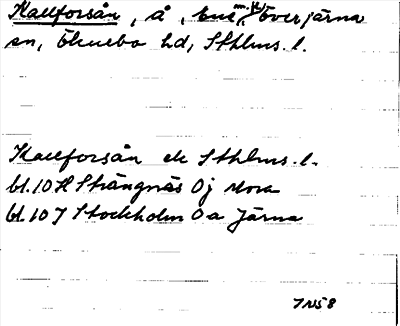 Kallforsån, å, Ene m.fl., Överjärna
sn, Öknebo hd, Sthlms. l.
Kallforsån ek Sthlms. l.
bl. 10 H Strängnäs 0j Mora
bl. 10 I Stockholm 0a Järna
INS 8